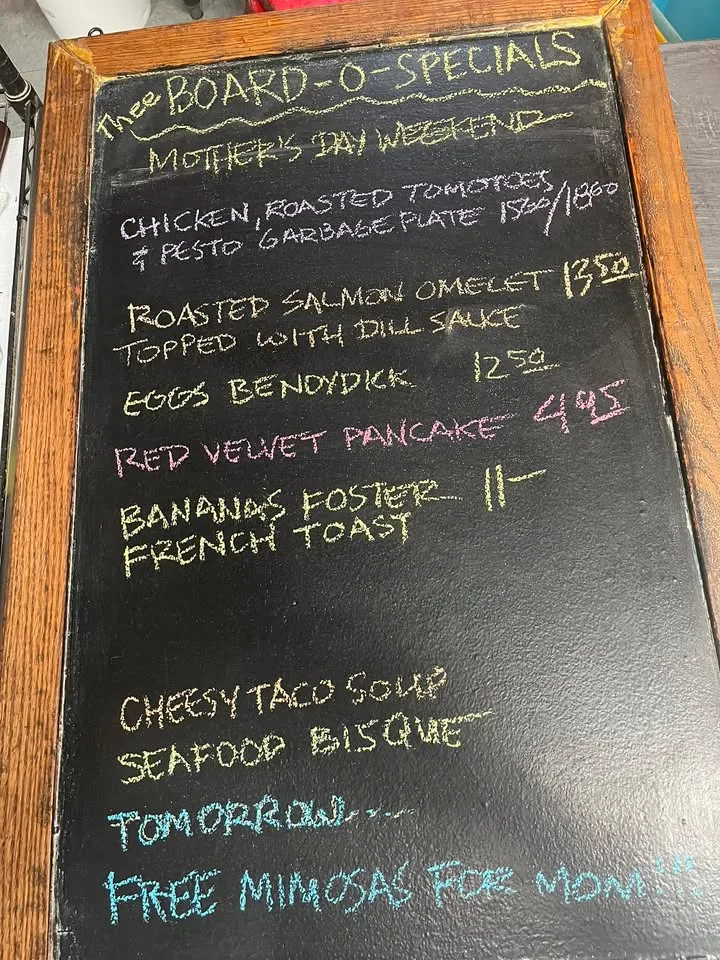 Thee BOARD-O-SPECIALS
MOTHER'S DAY WEEKEND
CHICKEN, ROASTED TOMOTOES
& PESTO GARBAGE PLATE 1500/1800
ROASTED SALMON OMELET 1350
TOPPED WITH DILL SAUCE
EGGS BENDYDICK 1250
RED VELVET PANCAKE 495
BANANAS FOSTER 11-
FRENCH TOAST
CHEESY TACO SOUP
SEAFOOD BISQUE
TOMORROW....
FREE MIMOSAS FOR MOM!!!